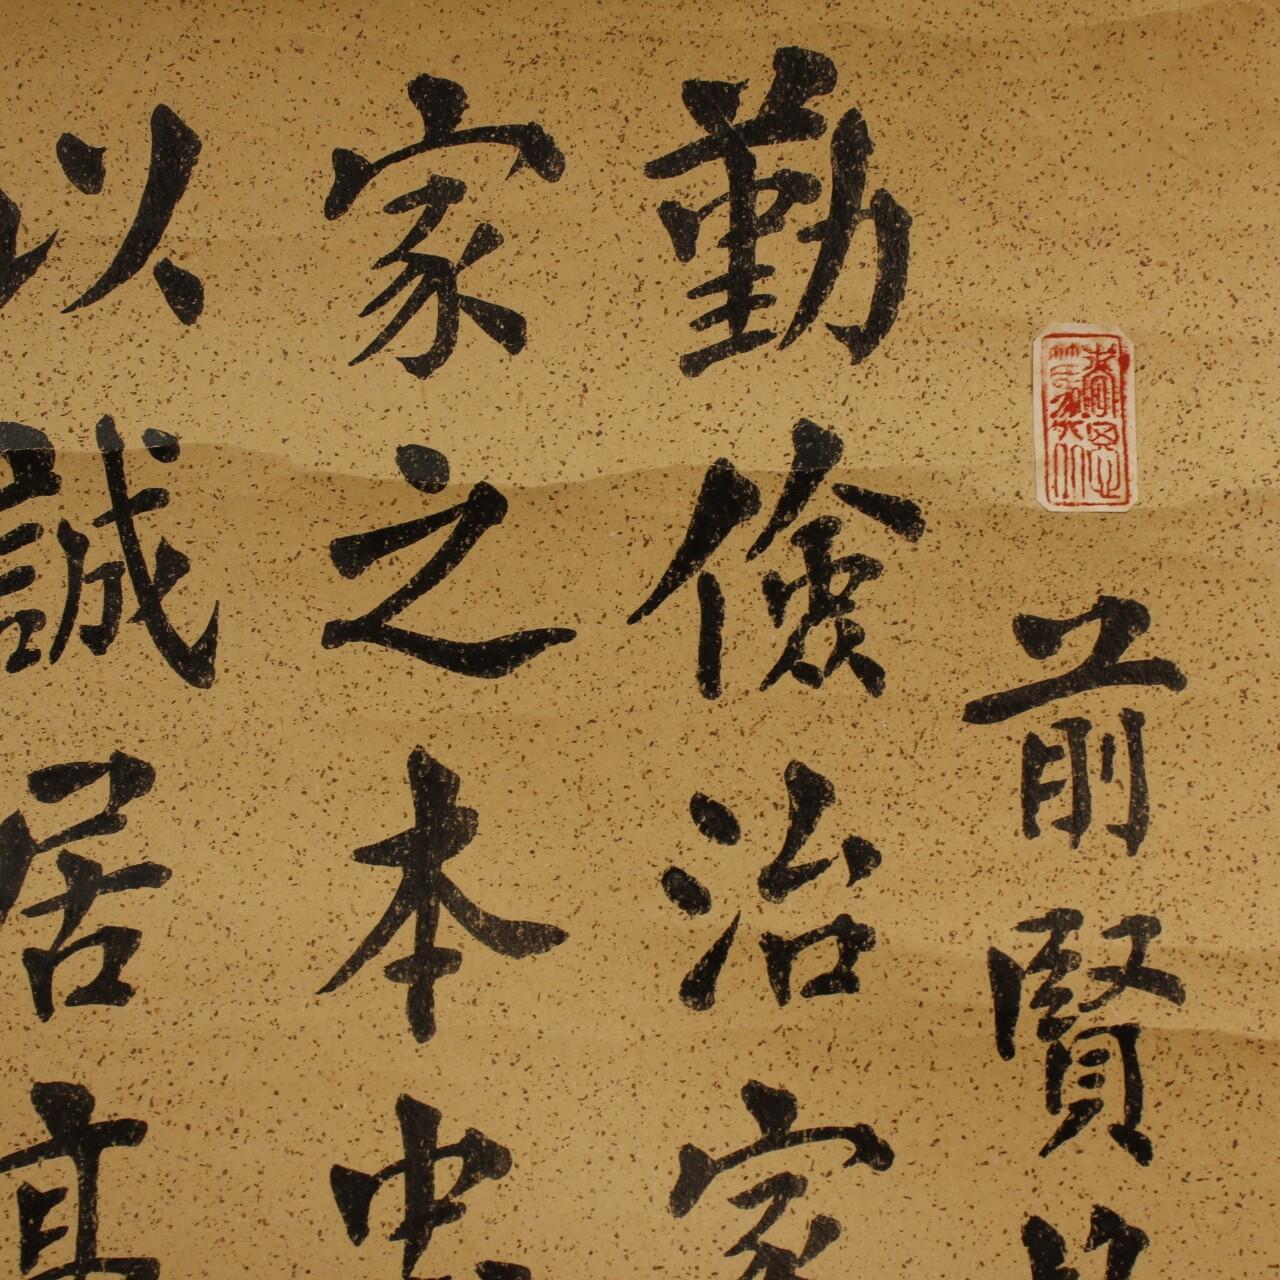 前賢
勤儉治家
家之本忠
以誠居